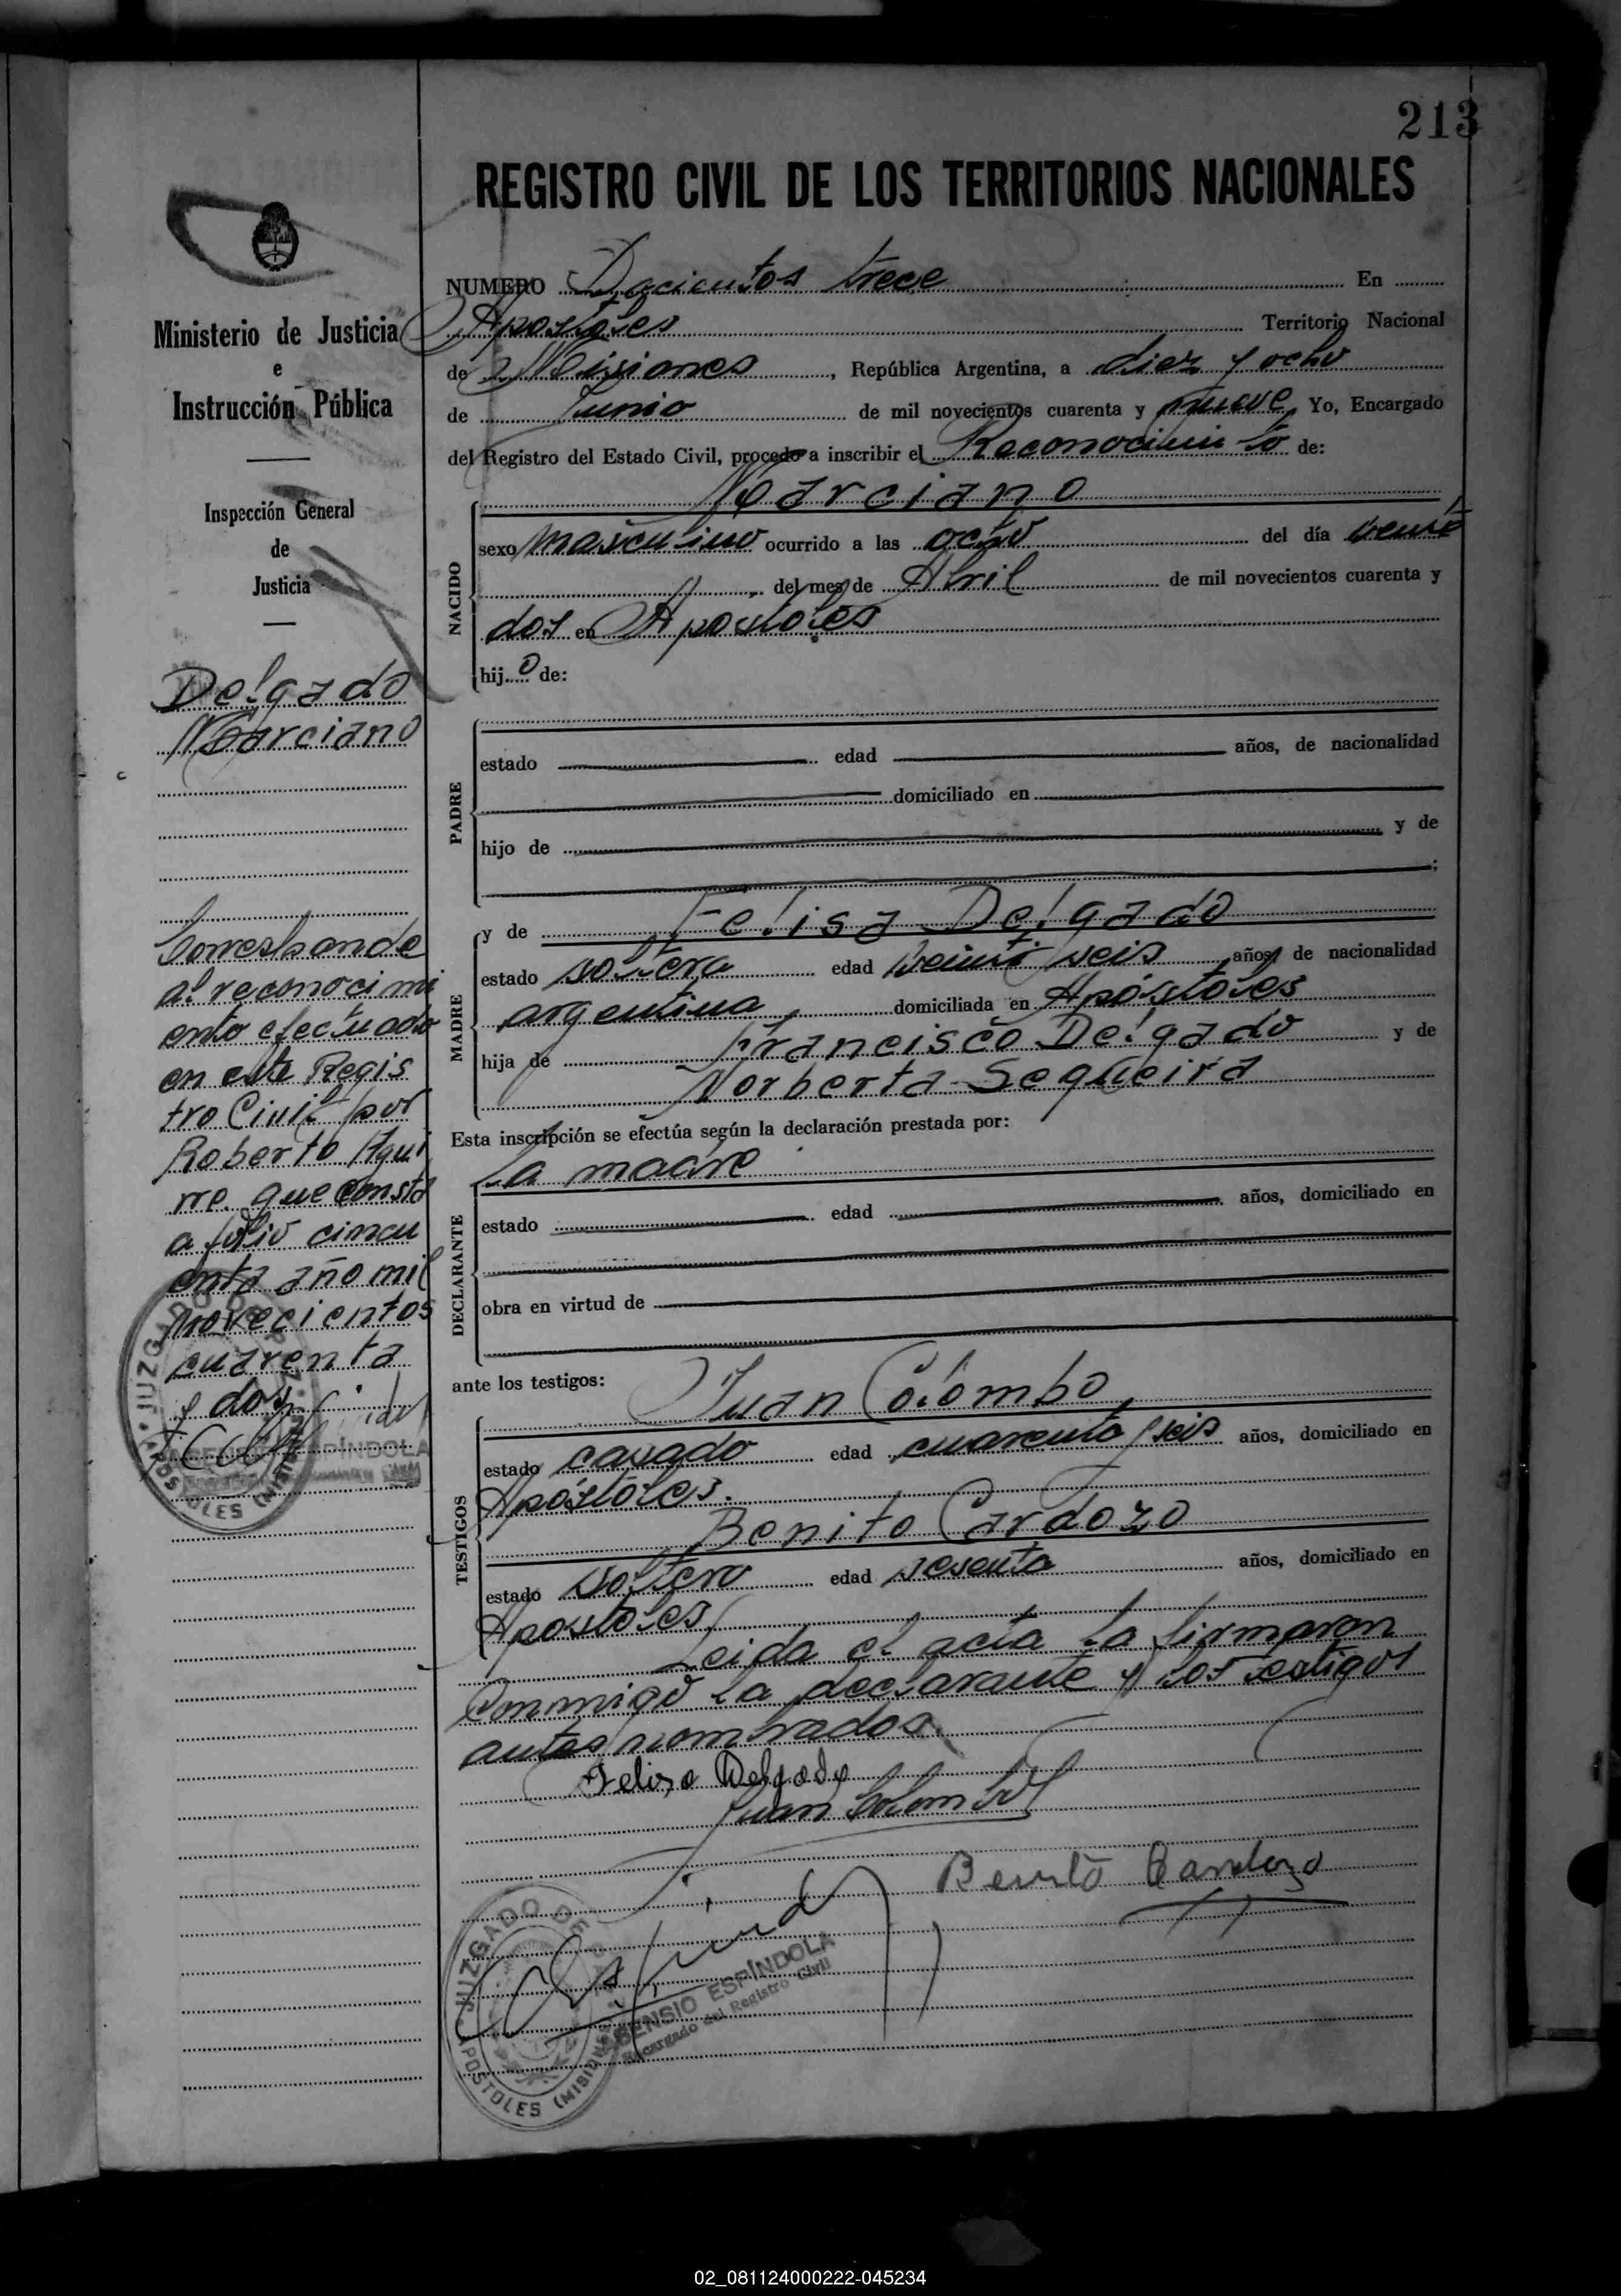 213
REGISTRO CIVIL DE LOS TERRITORIOS NACIONALES
Ministerio de Justicia
e
Instrucción Pública
Inspección General
de
Justicia
Delgado
Marciano
Corresponde
al reconocimi
ento efectuado
en este Regis
tro Civil por
Roberto Agui
rre. que consta
a folio cincu
enta año mil
novecientos
cuarenta
y dos
JUZGADO DE
APOSTOLES
ESPÍNDOLA
NUMERO Docientos trece En
Apostoles Territorio Nacional
de Misiones, República Argentina, a diez y ocho
de Junio de mil novecientos cuarenta y nueve Yo, Encargado
del Registro del Estado Civil, procedo a inscribir el Reconocimiento de:
Marciano
NACIDO
sexo masculino ocurrido a las ocho del día veinte
del mes de Abril de mil novecientos cuarenta y
dos en Apostoles
hijo de:
PADRE
estado edad años, de nacionalidad
domiciliado en
hijo de y de
;
MADRE
y de Felisa Delgado
estado soltera edad veinti seis años, de nacionalidad
argentina domiciliada en Apóstoles
hija de Francisco Delgado y de
Norberta Sequeira
Esta inscripción se efectúa según la declaración prestada por:
La madre
DECLARANTE
estado edad años, domiciliado en
obra en virtud de
ante los testigos:
Juan Colombo
TESTIGOS
estado casado edad cuarenta y seis años, domiciliado en
Apóstoles.
Benito Cardozo
estado soltero edad sesenta años, domiciliado en
Apostoles
Leida el acta la firmaron
conmigo la declarante y los testigos
antes nombrados
Felisa Delgado
Juan Colombo
Benito Cardozo
JUZGADO DE
APOSTOLES (MISIONES
ASENSIO ESPÍNDOLA
Encargado del Registro Civil
02_081124000222-045234